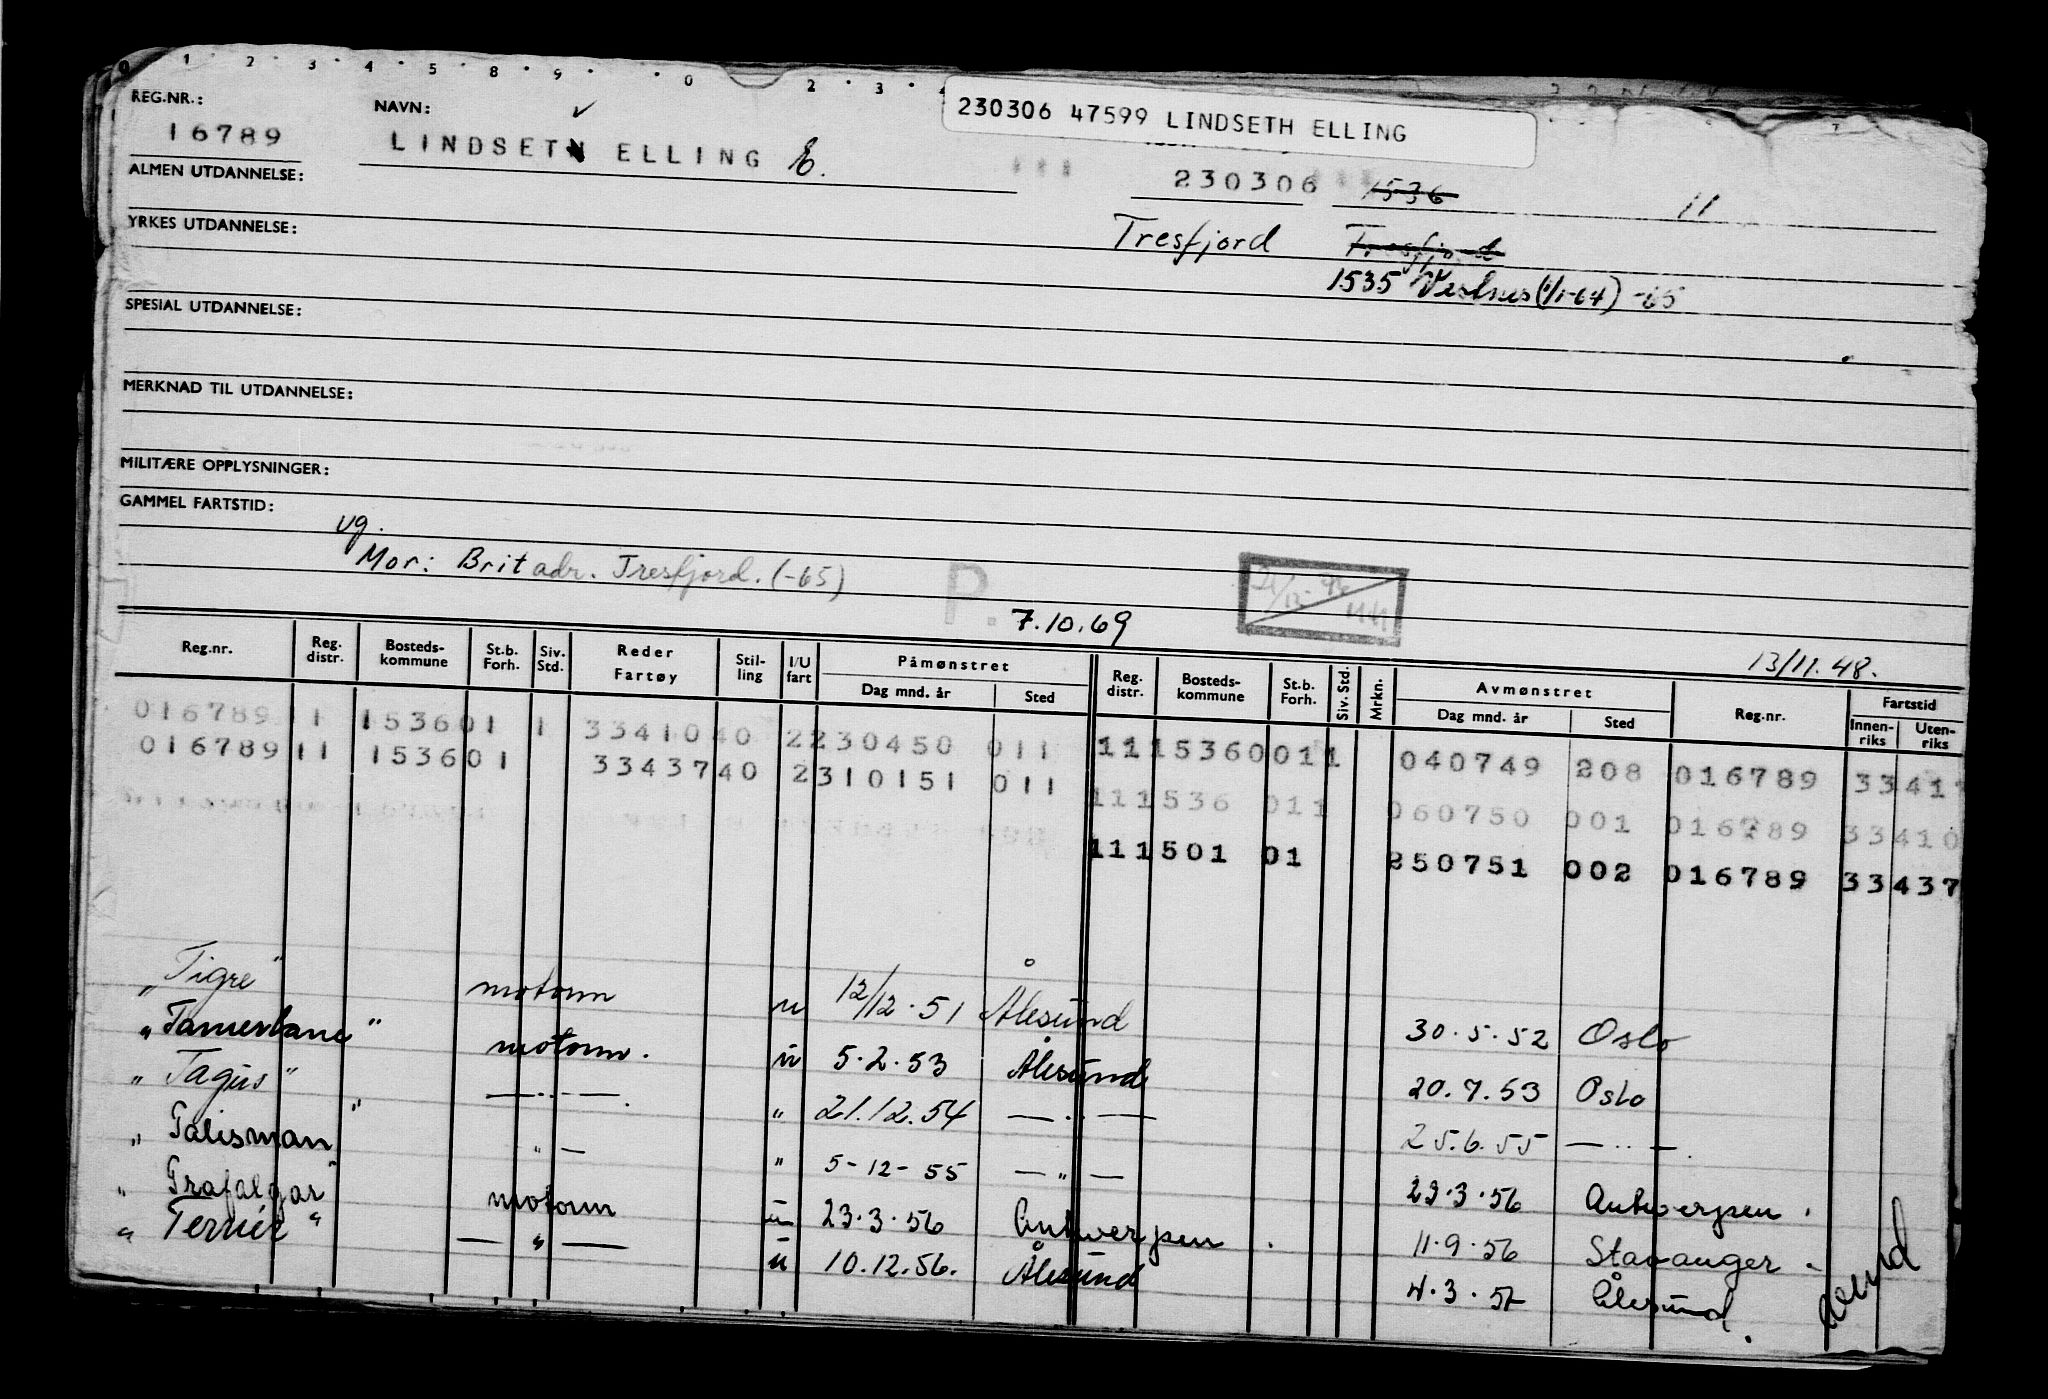 0 1 · 2 · 3 · 4 · 5 · 8 · 9 · · 0 2 · 3 ·
REG.NR.: NAVN: 230306 47599 LINDSETH ELLING
16789 LINDSETH ELLING E. 230306 1536 11
ALMEN UTDANNELSE:
YRKES UTDANNELSE: Tresfjord Tresfjord
1535 Vestnes (1/1-64) -65
SPESIAL UTDANNELSE:
MERKNAD TIL UTDANNELSE:
MILITÆRE OPPLYSNINGER:
GAMMEL FARTSTID:
ug.
Mor: Brit adr. Tresfjord. (-65) P.
7.10.69
13/11.48.
Reg.nr. Reg. distr. Bosteds- kommune St.b. Forh. Siv. Std. Reder Fartøy Stil- ling I/U fart Påmønstret Dag mnd. år Sted Reg. distr. Bosteds- kommune St.b. Forh. Siv. Std. Mrkn. Avmønstret Dag mnd. år Sted Reg.nr. Fartstid Innen- riks Uten- riks
016789 11 153601 1 3341040 2230450 011 1115360011 040749 208 016789 33411
016789 11 153601 3343740 2310151 011 111536 011 060750 001 016789 33410
111501 01 250751 002 016789 33437
„Tigre" motorm u 12/12.51 Ålesund 30.5.52 Oslo
„Tamerlane" motorm. u 5.2.53 Ålesund 20.7.53 Oslo
„Tagus" —..—. " 21.12.54 —..— 25.6.55 —..—.
„Talisman" "— " 5-12-55 —"— 23.3.56 Antwerpen.
„Trafalgar" motorm u 23.3.56 Antwerpen. 11.9.56 Stavanger.
„Ternér" —"— u 10.12.56. Ålesund 4.3.57 Ålesund.